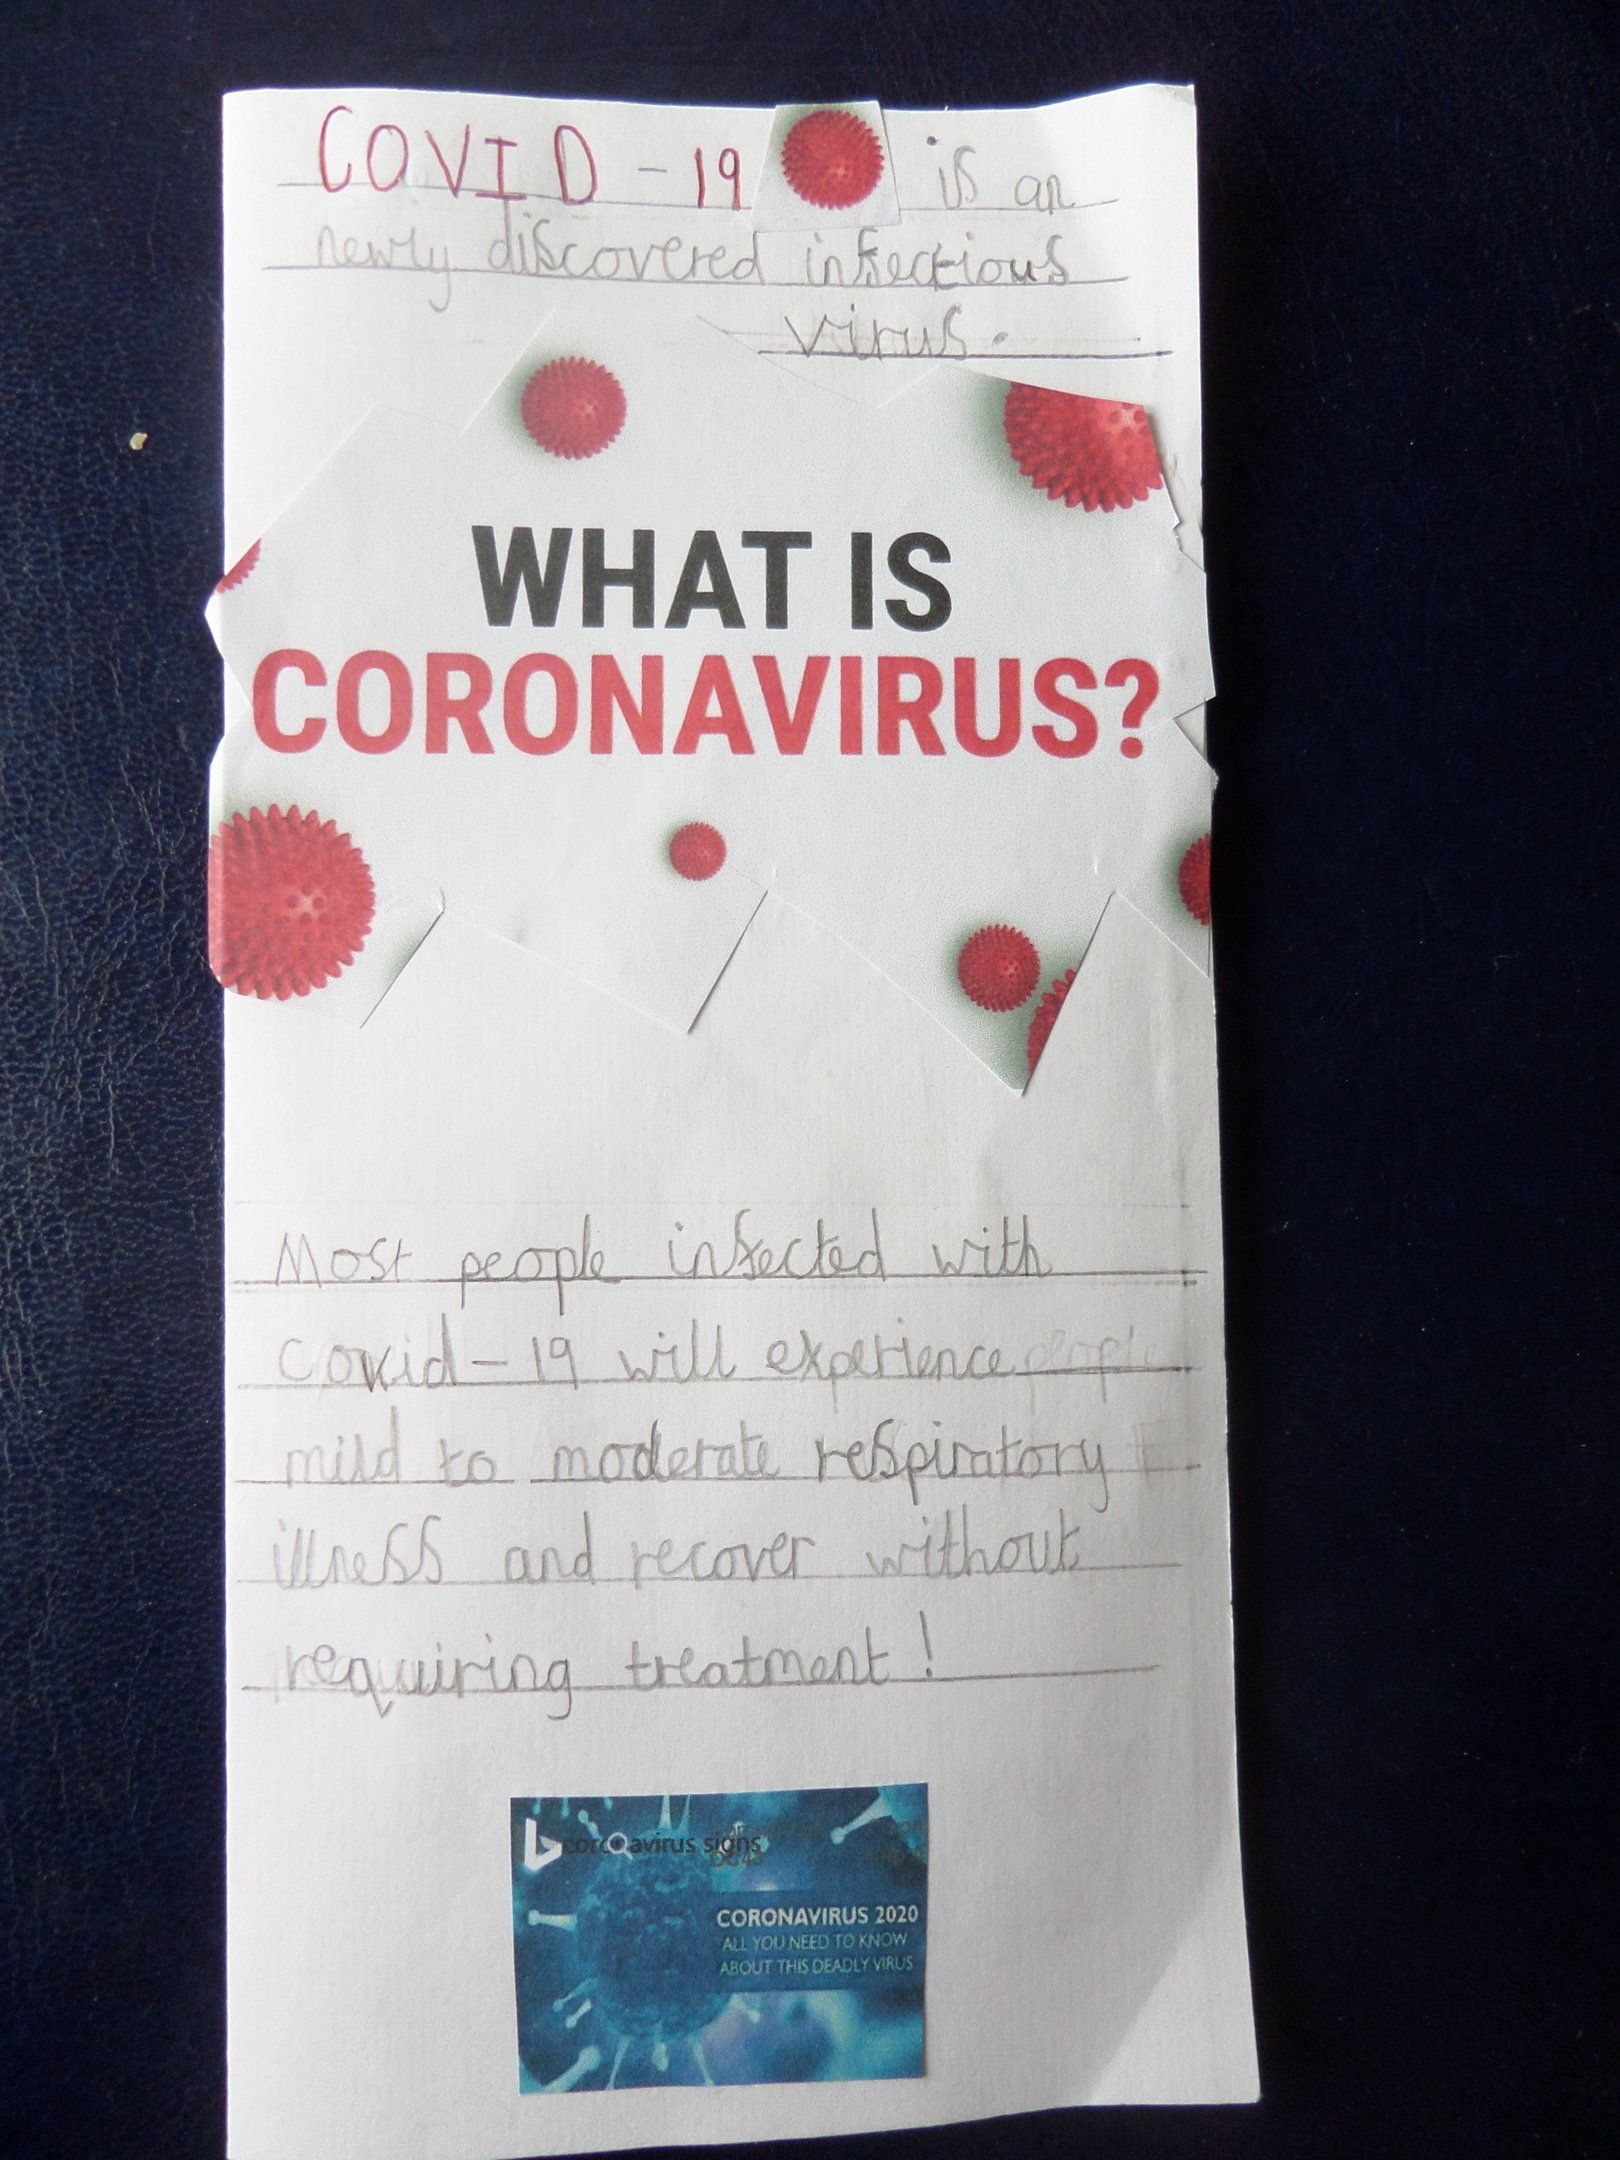 COVID-19 is an
newly discovered infectious
virus.
WHAT IS
CORONAVIRUS?
Most people infected with
Covid-19 will experience
mild to moderate respiratory
illness and recover without
requiring treatment!
coronavirus signs
CORONAVIRUS 2020
ALL YOU NEED TO KNOW
ABOUT THIS DEADLY VIRUS